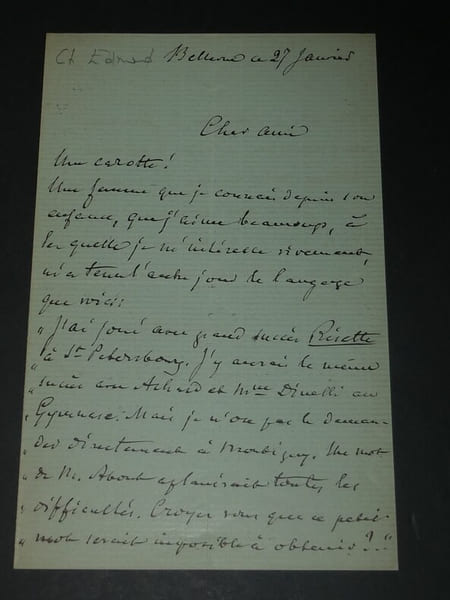 Ch Edmond Bellevue ce 27 Janvier
Cher ami
Une carotte!
Une femme que je connais depuis son
enfance, que j'aime beaucoup, à
laquelle je m'intéresse vivement,
m'a tenu l'autre jour le langage
que voici:
"J'ai joué avec grand succès Risette
"à St Petersbourg. J'y aurais le même
"succès avec Achard et Mme Dinelli au
"Gymnase. Mais je n'ose pas le deman-
"der directement à Montigny. Un mot
"de M. About aplanirait toutes les
"difficultés. Croyez vous que ce petit
"mot serait impossible à obtenir?"